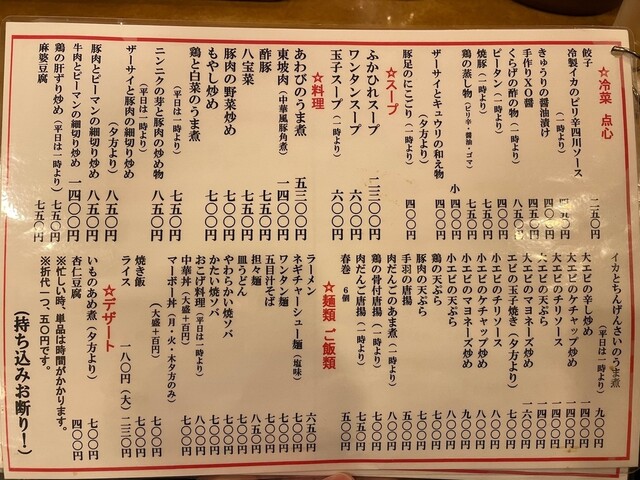 ☆冷菜 点心
餃子 二五〇円
冷製イカのピリ辛四川ソース
(一時より) 七五〇円
きゅうりの醤油漬け 四〇〇円
手作りXO醤 四五〇円
くらげの酢の物(一時より) 八五〇円
ピータン(一時より) 四五〇円
焼豚(一時より) 七五〇円
鶏の蒸し物(ピリ辛・醤油・ゴマ) 七五〇円
小 四〇〇円
ザーサイとキュウリの和え物
(夕方より) 四五〇円
豚足のにこごり(一時より) 四〇〇円
☆スープ
ふかひれスープ 二三〇〇円
ワンタンスープ 六〇〇円
玉子スープ(一時より) 六〇〇円
☆料理
あわびのうま煮 五三〇〇円
東坡肉(中華風豚角煮) 一四〇〇円
酢豚 七五〇円
八宝菜 七五〇円
豚肉の野菜炒め 七〇〇円
もやし炒め 七〇〇円
鶏と白菜のうま煮
(平日は一時より) 七五〇円
ニンニクの芽と豚肉の炒め物
(平日は一時より) 八五〇円
ザーサイと豚肉の細切り炒め
(夕方より) 八五〇円
豚肉とピーマンの細切り炒め 八五〇円
牛肉とピーマンの細切り炒め 一四〇〇円
鶏の肝ずり炒め(平日は一時より) 七五〇円
麻婆豆腐 七五〇円
イカとちんげんさいのうま煮
(平日は一時より) 九〇〇円
大エビの辛し炒め 一四〇〇円
大エビのケチャップ炒め 一四〇〇円
大エビのチリソース 一四〇〇円
大エビの天ぷら 一四〇〇円
大エビのマヨネーズ炒め 一六〇〇円
エビの玉子焼き(夕方より) 七〇〇円
小エビのチリソース 八〇〇円
小エビのケチャップ炒め 八〇〇円
小エビのマヨネーズ炒め 九〇〇円
小エビの天ぷら 八〇〇円
鶏の天ぷら 七五〇円
豚肉の天ぷら 七五〇円
手羽の唐揚 八〇〇円
肉だんごのあま煮(一時より) 八〇〇円
鶏の骨付唐揚(一時より) 七五〇円
肉だんご唐揚(一時より) 七五〇円
春巻 6個 五〇〇円
☆麺類 ご飯類
ラーメン 六五〇円
ネギチャーシュー麺(塩味) 九〇〇円
ワンタン麺 七〇〇円
五目汁そば 七〇〇円
担々麺 八五〇円
皿うどん 七〇〇円
やわらかい焼ソバ 七〇〇円
かたい焼ソバ 七〇〇円
おこげ料理(平日は一時より) 八〇〇円
中華丼(大盛+百円) 七〇〇円
マーボー丼(月・火・木夕方のみ)
(大盛+百円) 七〇〇円
焼き飯 七〇〇円
ライス 一八〇円(大)二三〇円
☆デザート
いものあめ煮(夕方より) 七〇〇円
杏仁豆腐 四〇〇円
※忙しい時、単品は時間がかかります。
※折代一つ、五〇円です。
(持ち込みお断り!)